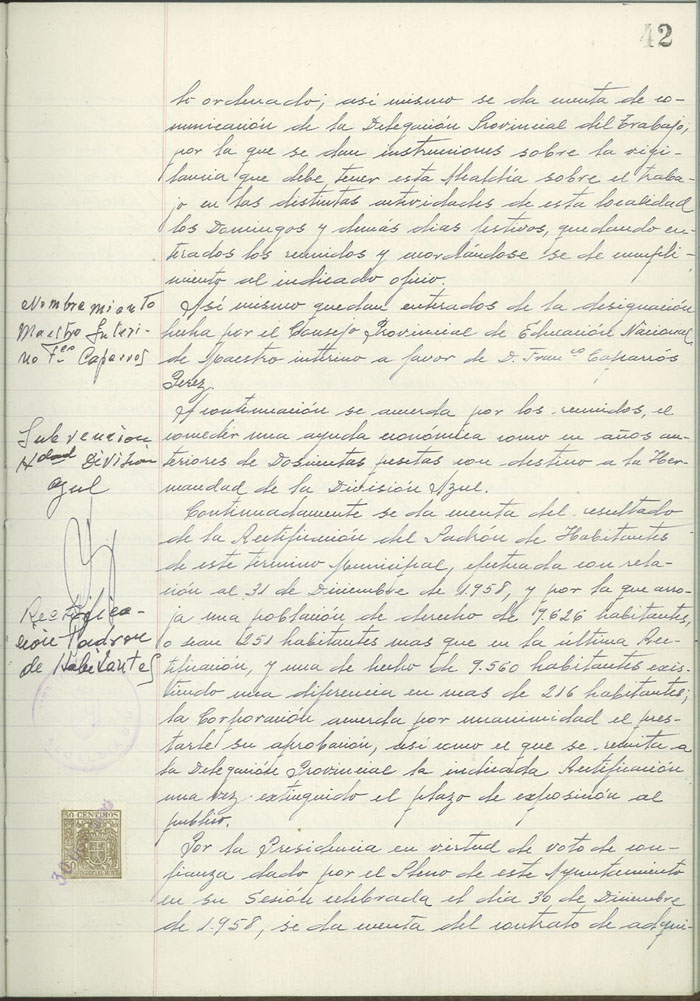 42
lo ordenado; así mismo se da cuenta de co-
municación de la Delegación Provincial del Trabajo,
por la que se dan instruciones sobre la vigi-
lancia que debe tener esta Alcaldía sobre el traba-
jo en las distintas actividades de esta localidad
los Domingos y demás dias festivos, quedando en-
terados los reunidos y acordándose se de cumpli-
miento al indicado oficio.
Nombramiento
Maestro Interi-
no Fco Caparros
Así mismo quedan enterados de la designación
hecha por el Consejo Provincial de Educación Nacional,
de Maestro interino a favor de D. Franco Caparrós
Perez.
Subvencion
Hdad División
Azul
A continuación se acuerda por los reunidos, el
conceder una ayuda económica como en años an-
teriores de Doscientas pesetas con destino a la Her-
mandad de la División Azul.
Rectifica-
ción Padron
de Habitantes
Continuadamente se da cuenta del resultado
de la Rectificación del Padrón de Habitantes
de este término Municipal, efectuada con rela-
ción al 31 de Diciembre de 1.958, y por la que arro-
ja una población de derecho de 9.626 habitantes,
o sean 251 habitantes mas que en la última Rec-
tificación, y una de hecho de 9.560 habitantes exis-
tiendo una diferencia en mas de 216 habitantes;
la Corporación acuerda por unanimidad el pres-
tarle su aprobación, así como el que se remita a
la Delegación Provincial la indicada Rectificación
una vez extinguido el plazo de exposición al
publico.
Por la Presidencia en virtud de voto de con-
fianza dado por el Pleno de este Ayuntamiento
en su Sesión celebrada el dia 30 de Diciembre
de 1.958, se da cuenta del contrato de adqui-
ALCALDIA
50 CENTIMOS